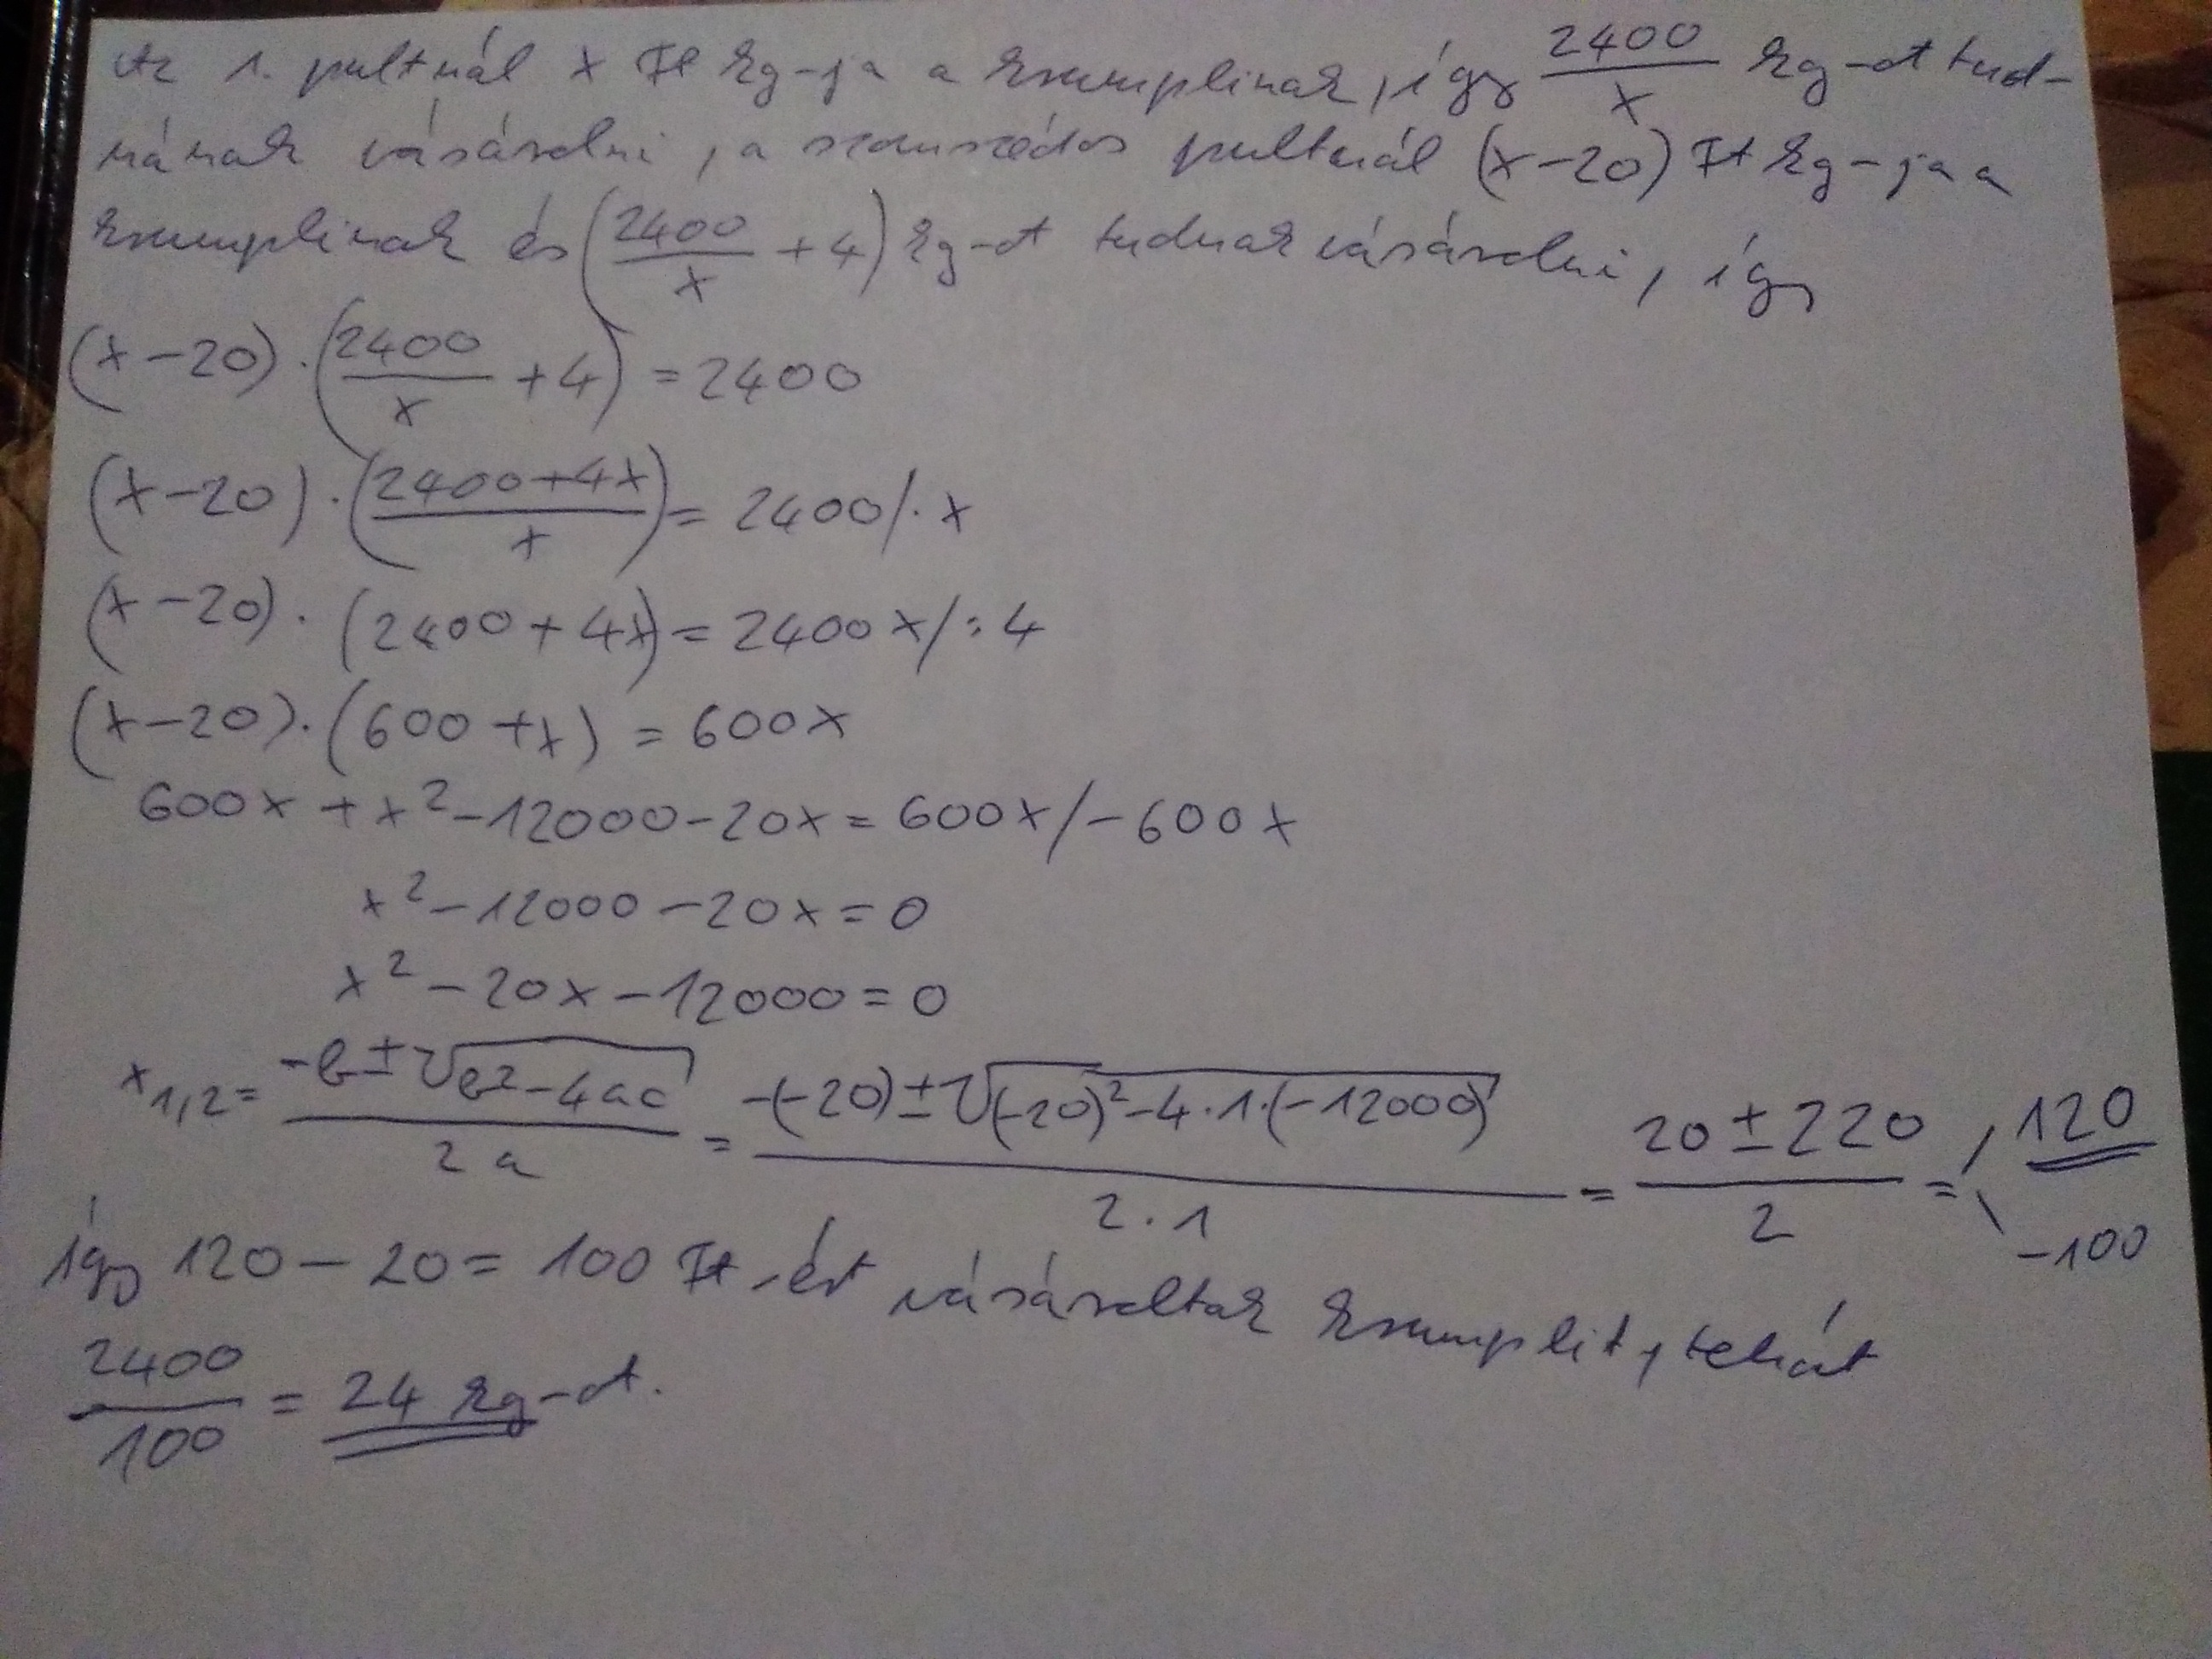 Az 1. pultnál x Ft kg-ja a krumplinak, így 2400/x kg-ot tud-
nának vásárolni, a szomszédos pultnál (x-20) Ft kg-ja a
krumplinak és (2400/x + 4) kg-ot tudnak vásárolni, így
(x-20)·(2400/x + 4) = 2400
(x-20)·((2400+4x)/x) = 2400 /·x
(x-20)·(2400+4x) = 2400x /:4
(x-20)·(600+x) = 600x
600x + x² - 12000 - 20x = 600x /-600x
x² - 12000 - 20x = 0
x² - 20x - 12000 = 0
x1,2 = (-b ± √(b²-4ac))/(2a) = (-(-20) ± √((-20)²-4·1·(-12000)))/(2·1) = (20 ± 220)/2 = 120
-100
így 120 - 20 = 100 Ft-ért vásároltak krumplit, tehát
2400/100 = 24 kg-ot.